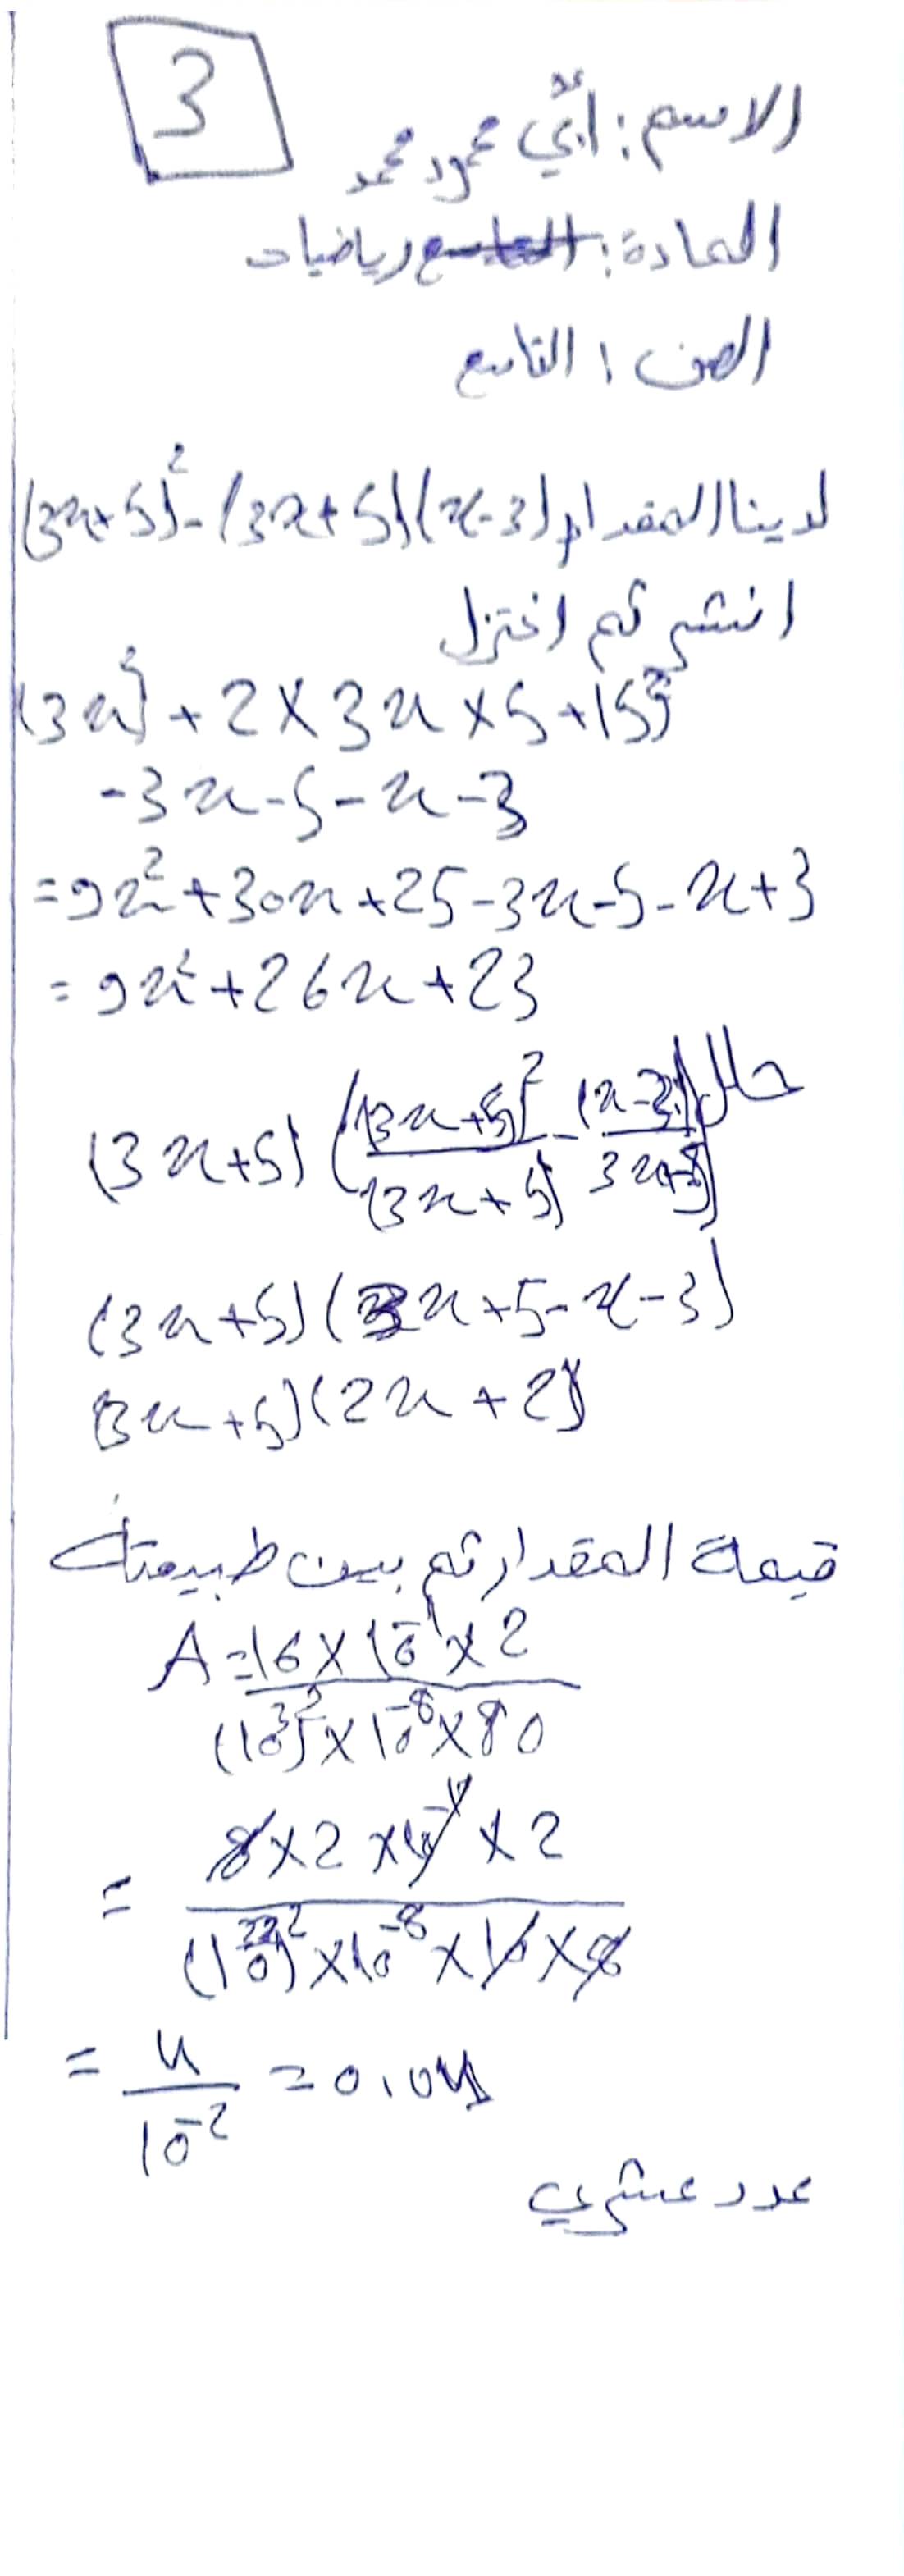 3
الاسم: أبّي محمود محمد
المادة: التاسع رياضيات
الصف: التاسع
لدينا المقدار (3x+5)² - (3x+5)(x-3)
انشر ثم اختزل
(3x)² + 2 × 3x × 5 + (5)²
-3x - 5 - x - 3
= 9x² + 30x + 25 - 3x - 5 - x + 3
= 9x² + 26x + 23
حلل (3x+5) ((3x+5)²/(3x+5) - (x-3)/3x+5)
(3x+5)(3x+5-x-3)
(3x+5)(2x+2)
قيمة المقدار ثم بين طبيعته
A = 16 × 10⁻¹ × 2 / (10³)² × 10⁻⁸ × 80
= 8 × 2 × 10⁻¹ × 2 / (10³)² × 10⁻⁸ × 10 × 8
= 4 / 10⁻² = 0.04
عدد عشري